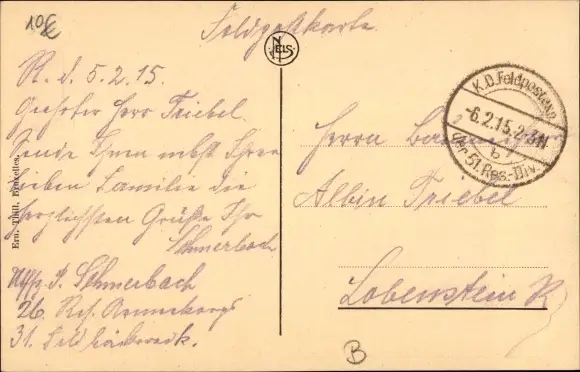 10 €
Feldpostkarte
NELS
R. d. 5.2.15.
Geehrter Herr Triebel.
Sende Ihnen nebst Ihrer
lieben Familie die
herzlichsten Grüße Ihr
Schmerbach
P. Schmerbach
26. Res. Armeekorps
31. Feldbäck
Ern. Thill, Bruxelles.
K.D. Feldpostexp.
-6.2.15.
b
der 51. Res.-Div.
Herrn
Albin Triebel
Lobenstein R
B